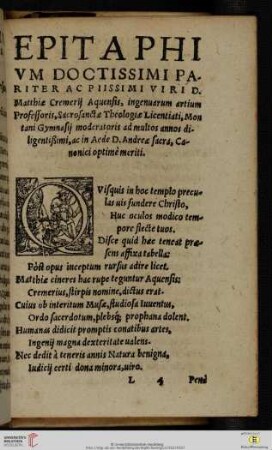 EPITAPHI
VM DOCTISSIMI PA-
RITER AC PIISSIMI VIRI D.
Matthiæ Cremerij Aquensis, ingenuarum artium
Professoris, Sacrosanctæ Theologiæ Licentiati, Mon
tani Gymnasij moderatoris ad multos annos di-
ligentißimi, ac in Aede D. Andreæ sacra, Ca-
nonici optimè meriti.
QVisquis in hoc templo precu-
las uis fundere Christo,
Huc oculos modico tem-
pore flecte tuos.
Disce quid hæc teneat præ-
sens affixa tabella:
Pòst opus inceptum rursus adire licet.
Matthiæ cineres hac rupe teguntur Aquensis:
Cremerius, stirpis nomine, dictus erat.
Cuius ob interitum Musæ, studiosa Iuuentus,
Ordo sacerdotum, plebsq́; prophana dolent.
Humanas didicit promptis conatibus artes,
Ingenij magna dexteritate ualens.
Nec dedit à teneris annis Natura benigna,
Iudicij certi dona minora, uiro.
L 4 Penè